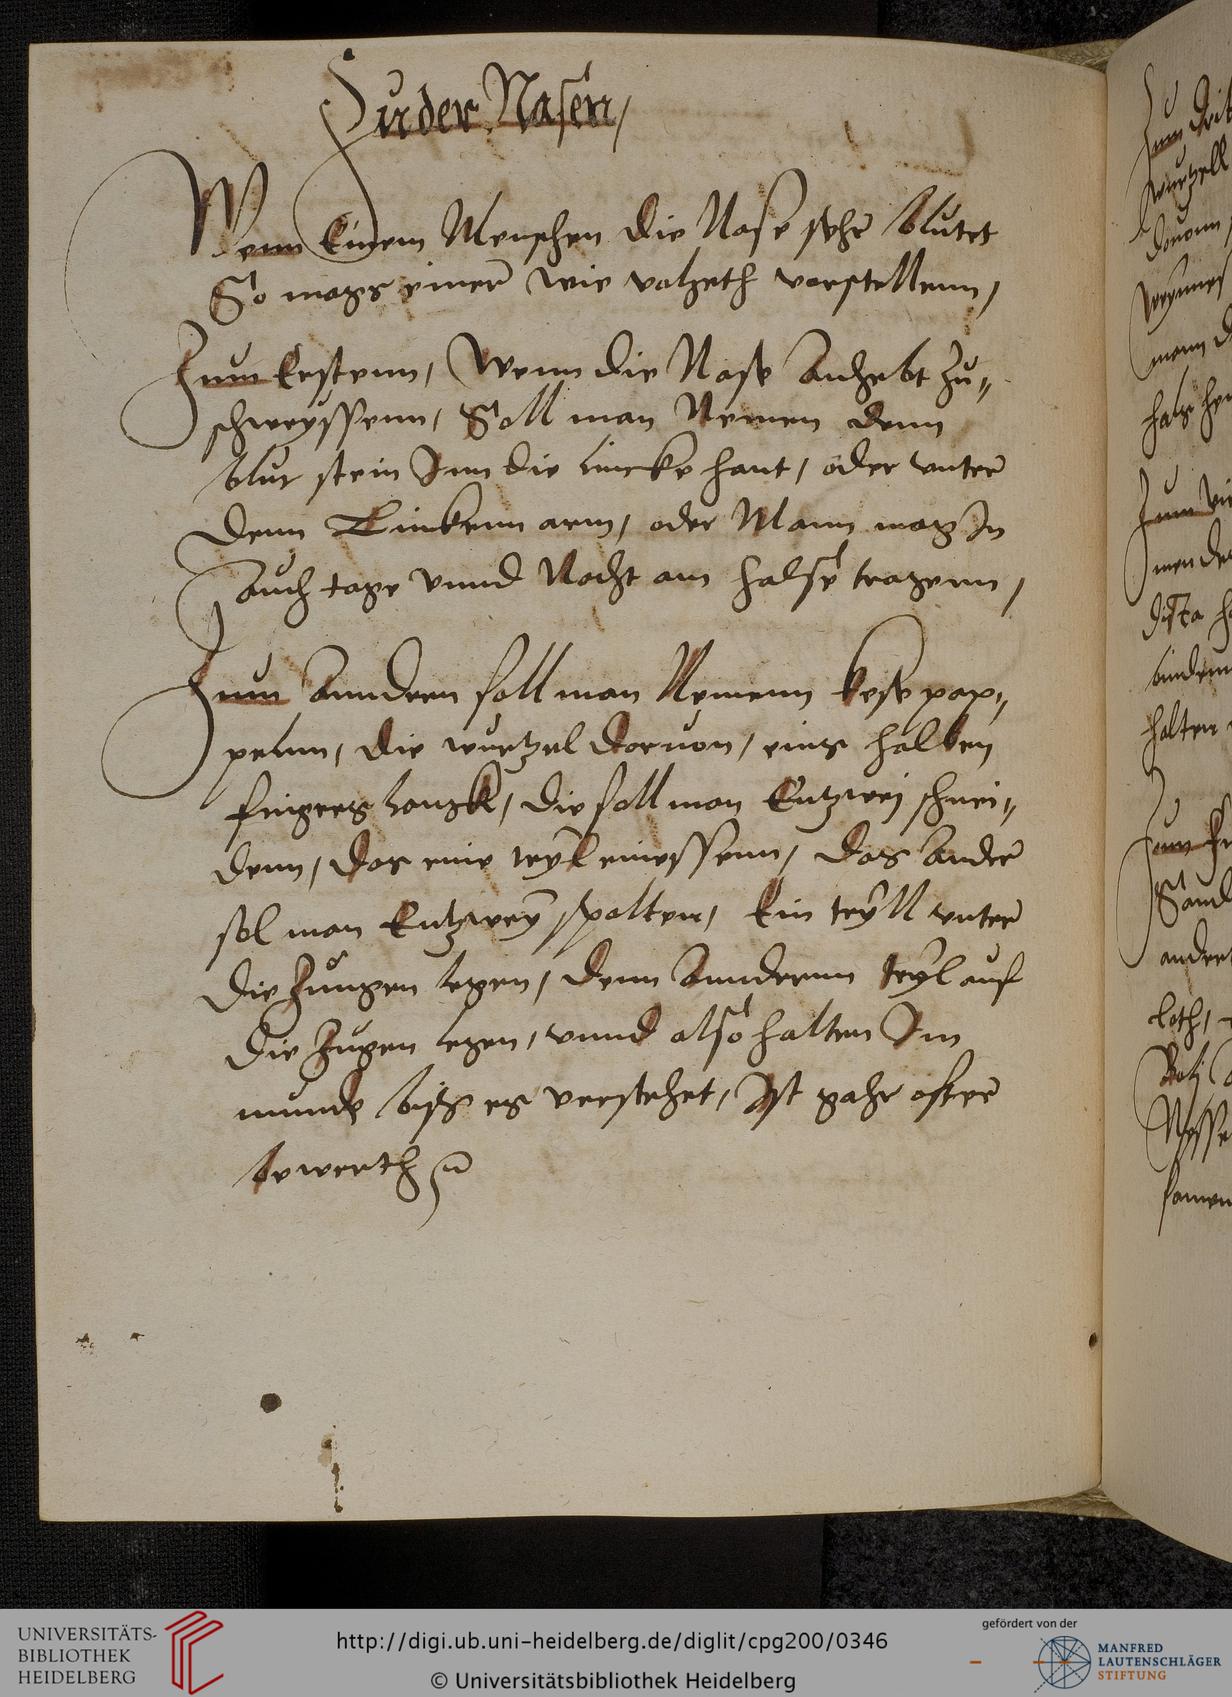 Zu der Nasen /
Wenn Einem Menschen die Nase sehr blutet
So mags einer wie volgeth vorstellenn /
Zum Erstenn / Wenn die Nase Anhebt zu=
schweyssenn / Soll man Nemen denn
blut stein Inn die lincke hant / oder unter
denn Linkenn arm / oder Mann mag In
auch tage unnd Nacht am halse tragenn /
Zum Anndern soll man Nemenn kese pap=
pelnn / die wurtzel doruon / eins halben
fingers langk / die soll man Entzwej schnei=
denn / das eine teyl einessenn / das ander
sol man Entzwey spalten / Ein teyll unter
die Zungen legen / denn Annderenn teyl auf
die Zugen legen / unnd also halten Im
munde biss es verstehet / Ist gahr offte
bewerth
UNIVERSITÄTS-
BIBLIOTHEK
HEIDELBERG
http://digi.ub.uni-heidelberg.de/diglit/cpg200/0346
© Universitätsbibliothek Heidelberg
gefördert von der
MANFRED
LAUTENSCHLÄGER
STIFTUNG